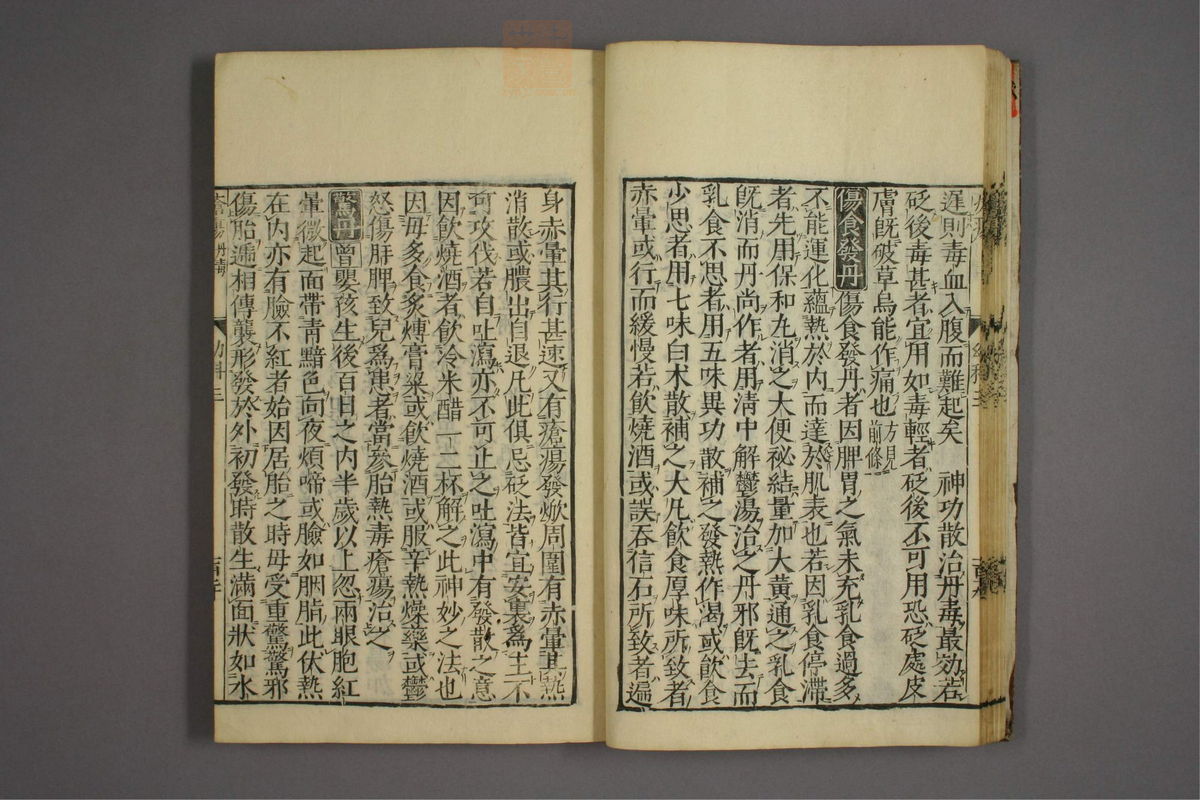 遅則毒血入腹而難起矣　神功散治丹毒最効若
砭後毒甚者宜用如毒輕者砭後不可用恐砭處皮
膚既破草烏能作痛也方見前條
傷食發丹　傷食發丹者因脾胃之氣未充乳食過多
不能運化蘊熱於内而達於肌表也若因乳食停滯
者先用保和丸消之大便秘結量加大黄通之乳食
既消而丹尚作者用清中解鬱湯治之丹邪既去而
乳食不思者用五味異功散補之發熱作渇或飲食
少思者用七味白术散補之大凡飲食厚味所致者
赤暈或行而緩慢若飲燒酒或誤吞信石所致者遍
身赤暈其行甚速又有瘡瘍發焮周圍有赤暈其熱
消散或膿出自退凡此俱忌砭法皆宜安裏爲主不
可攻伐若自吐瀉亦不可止之吐瀉中有發散之意
因飲燒酒者飲冷米醋一二杯解之此神妙之法也
因毋多食炙煿膏粱或飲燒酒或服辛熱燥藥或鬱
怒傷肝脾致兒爲患者當參胎熱毒瘡瘍治之
驚丹　曾嬰孩生後百日之内半歲以上忽兩眼胞紅
暈微起面帶青黯色向夜煩啼或臉如胭脂此伏熱
在内亦有臉不紅者始因居胎之時毋受重驚驚邪
傷胎遞相傳襲形發於外初發時散生滿面狀如水